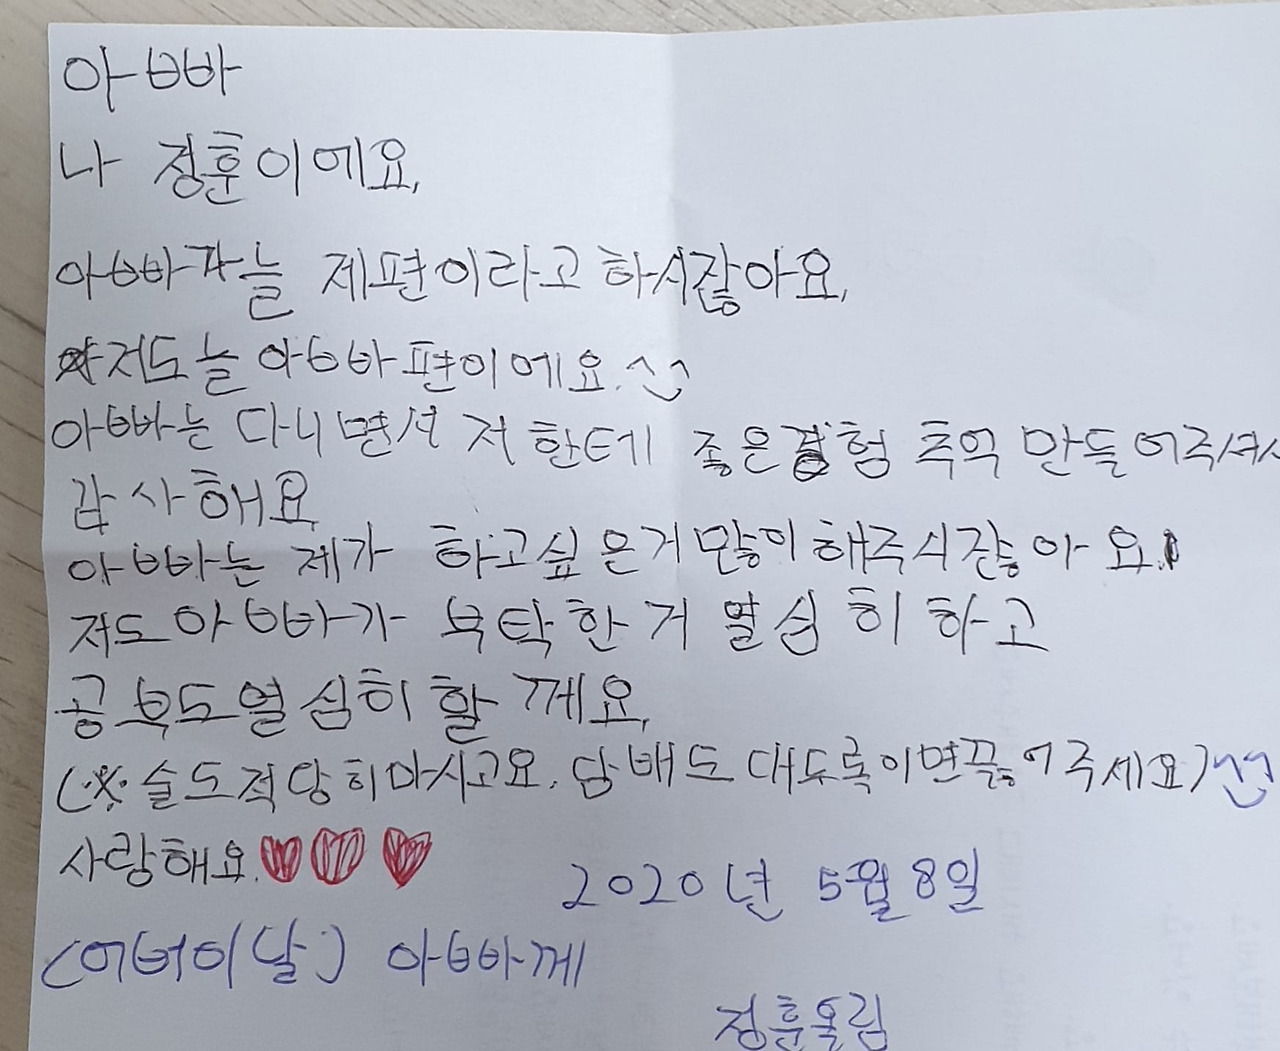 아빠
나 정훈이에요,
아빠가늘 제편이라고 하시잖아요,
저도늘 아빠편이에요.^_^
아빠는 다니면서 저한테 좋은경험 추억 만들어주셔서
감사해요,
아빠는 제가 하고싶은거많이해주시잖아요.
저도 아빠가 부탁한거 열심히하고
공부도열심히할께요,
(※술도적당히마시고요.담배도대도록이면끊어주세요)^_^
사랑해요.♥♥♥
2020년 5월8일
(어버이날) 아빠께
정훈올림